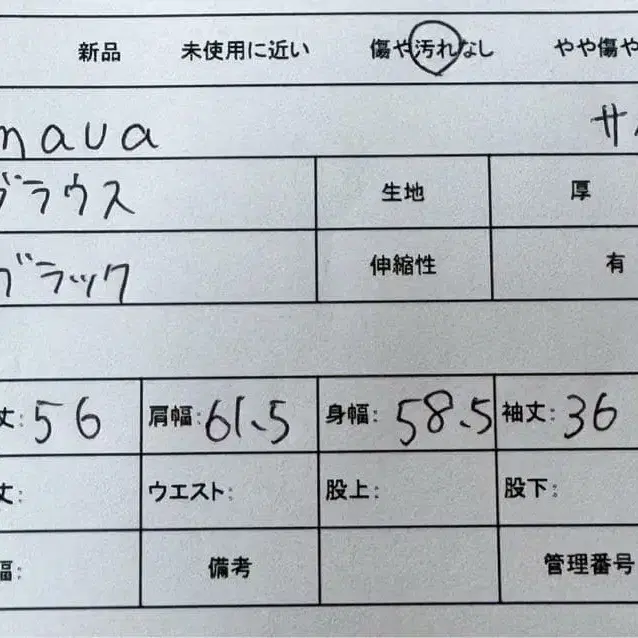 新品 未使用に近い 傷や汚れなし やや傷や
maua サ
ブラウス 生地 厚
ブラック 伸縮性 有
丈: 56 肩幅: 61.5 身幅: 58.5 袖丈: 36
丈: ウエスト: 股上: 股下:
幅: 備考 管理番号